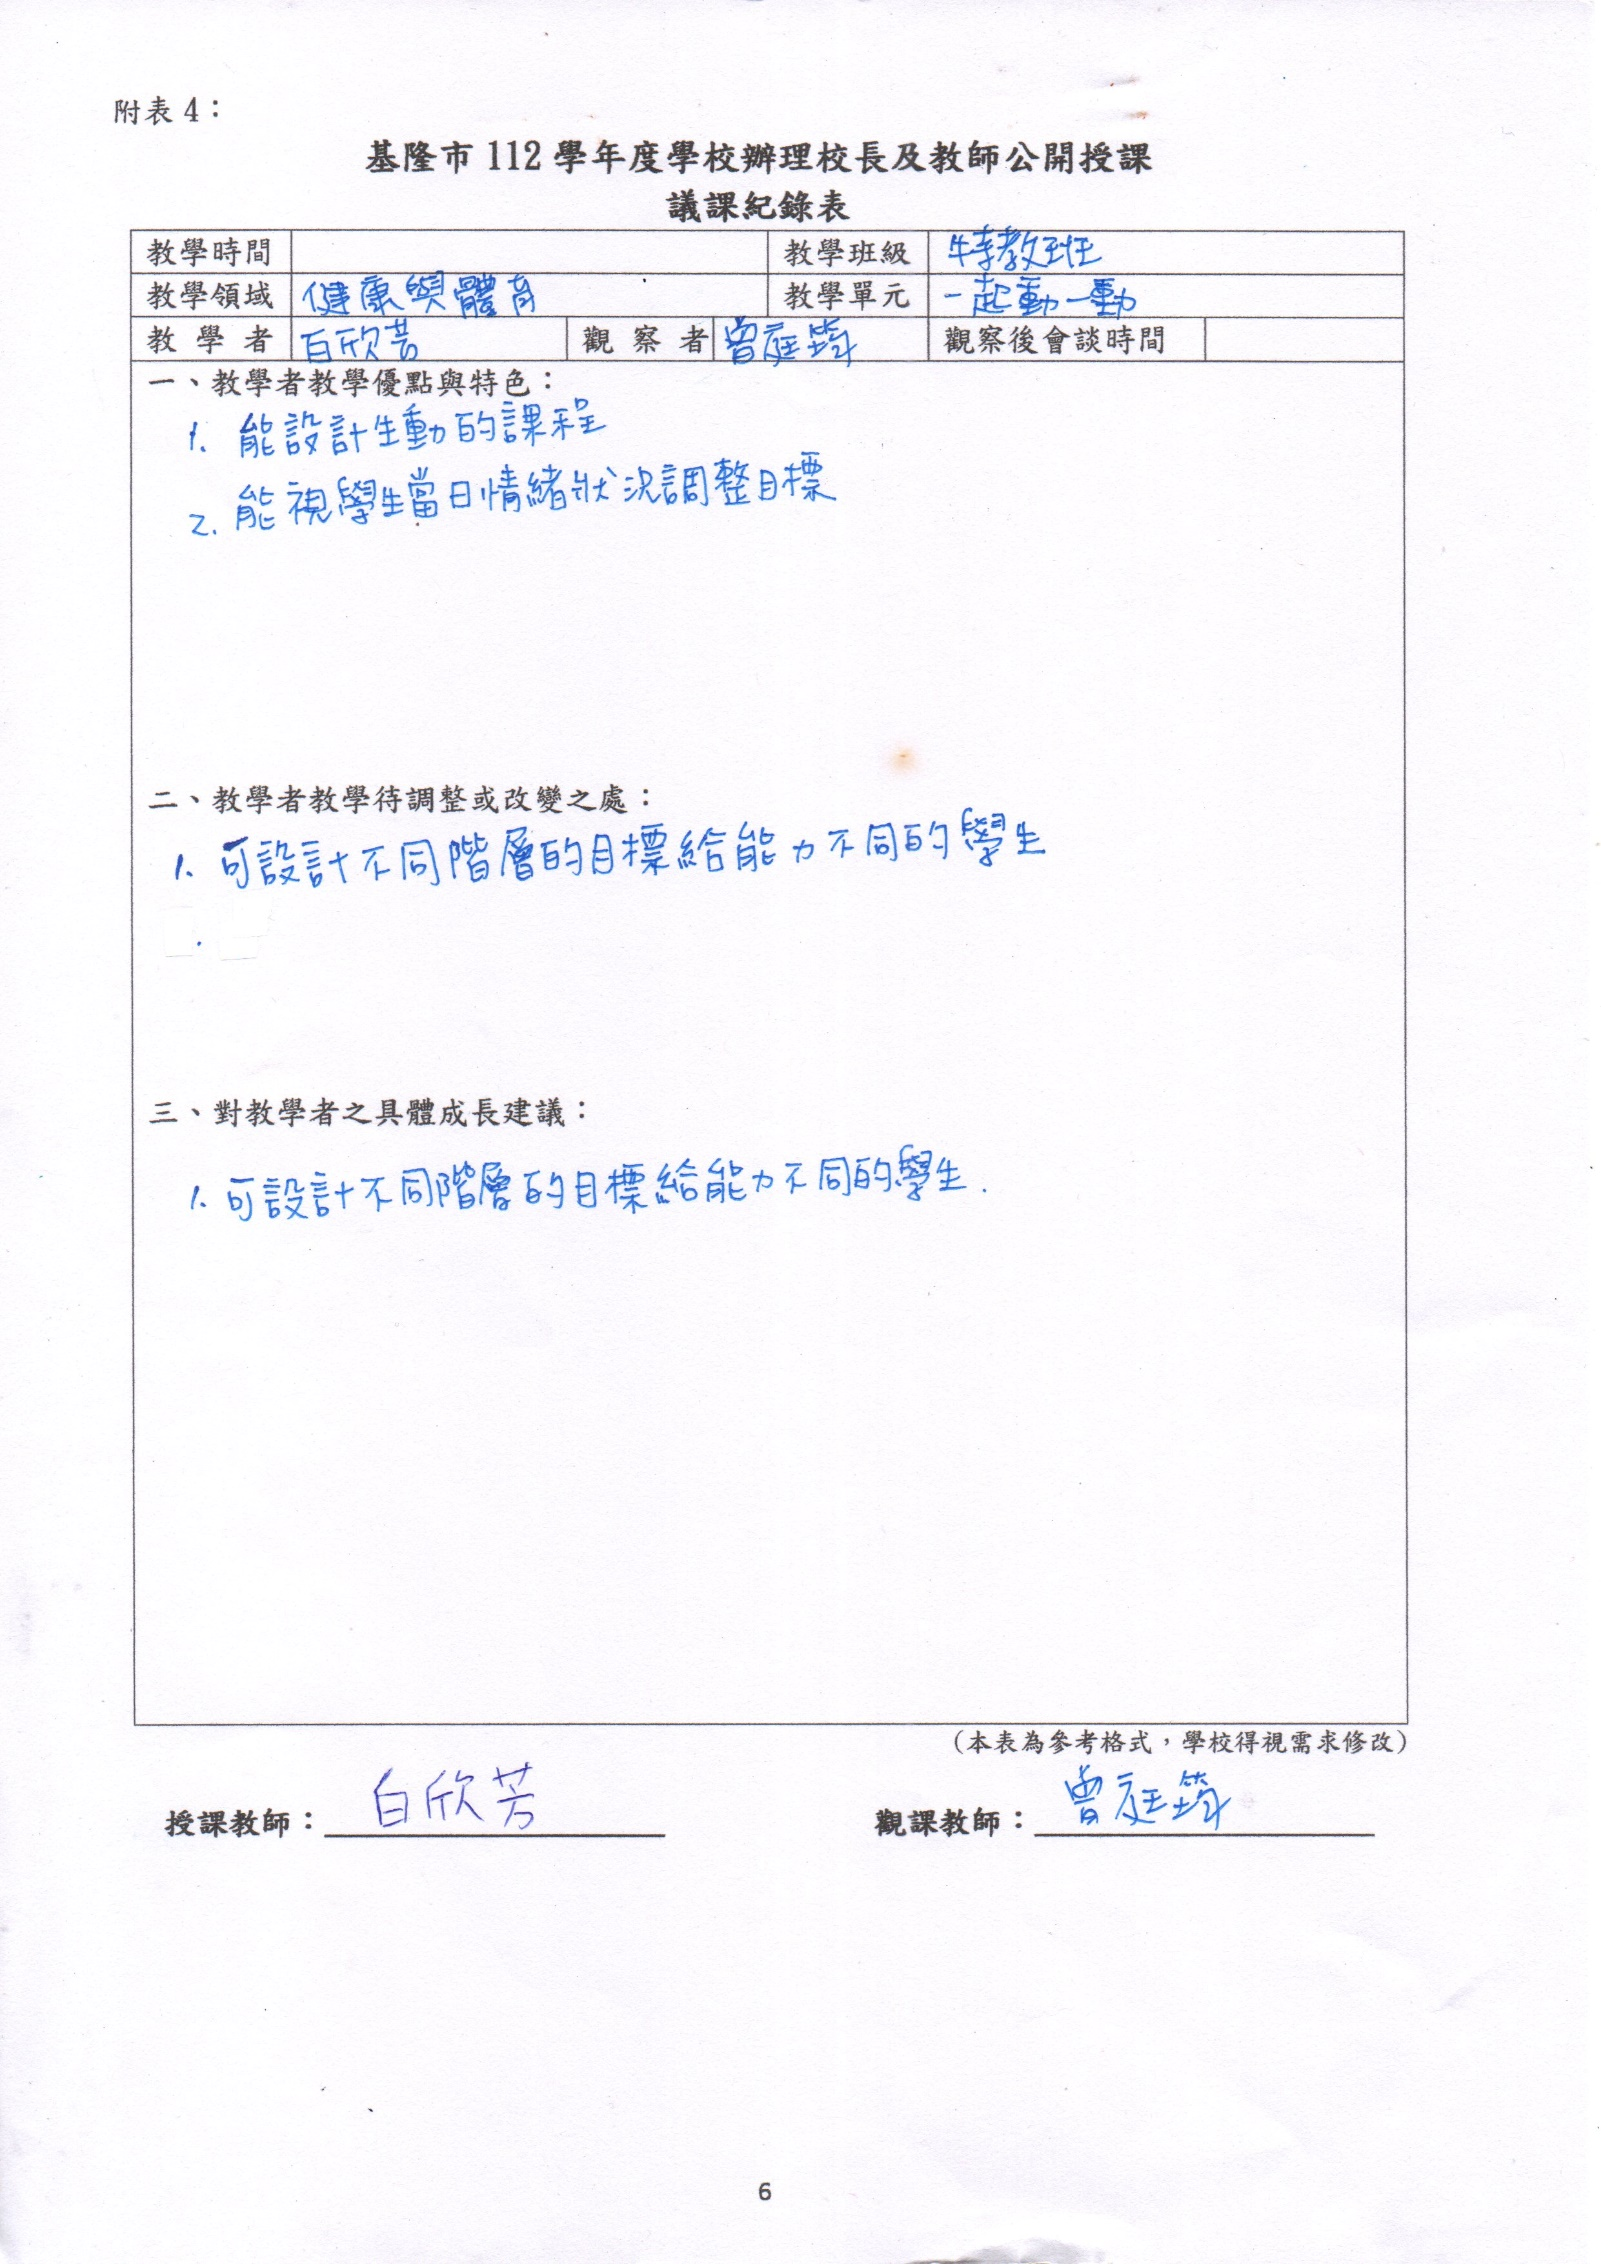 附表 4：
基隆市 112 學年度學校辦理校長及教師公開授課
議課紀錄表
教學時間 教學班級 特教班
教學領域 健康與體育 教學單元 一起動一動
教學者 白欣芳 觀察者 曾庭筠 觀察後會談時間
一、教學者教學優點與特色：
1. 能設計生動的課程
2. 能視學生當日情緒狀況調整目標
二、教學者教學待調整或改變之處：
1. 可設計不同階層的目標給能力不同的學生
三、對教學者之具體成長建議：
1. 可設計不同階層的目標給能力不同的學生.
(本表為參考格式，學校得視需求修改)
授課教師：白欣芳 觀課教師：曾庭筠
6